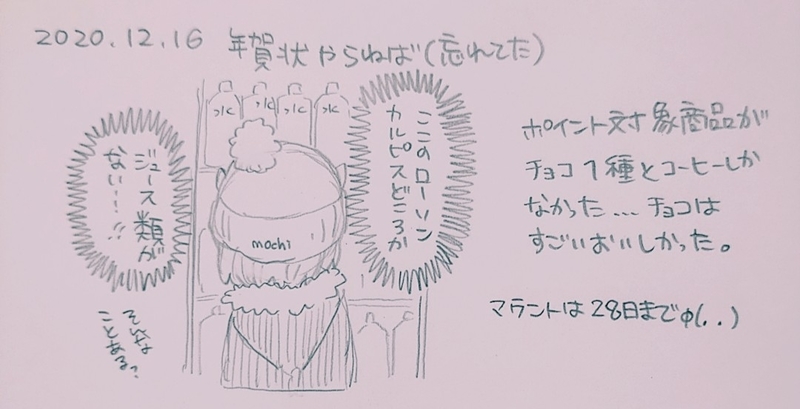 2020.12.16 年賀状やらねば(忘れてた)
水 水 水 水
ここのローソン
カルピスどころか
ジュース類が
ない…!!
そんな
ことある?
mochi
ポイント対象商品が
チョコ1種とコーヒーしか
なかった...チョコは
すごいおいしかった。
マラントは28日までφ(..)